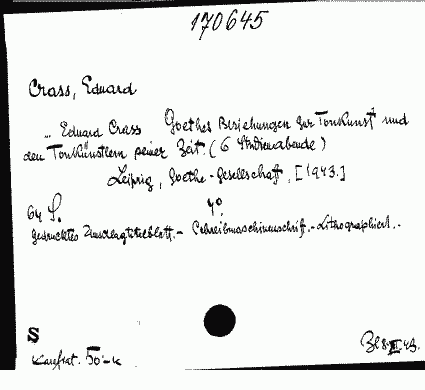 170645
Crass, Eduard
... Eduard Crass Goethes Beziehungen zur Tonkunst und
den Tonkünstlern seiner Zeit. (6 Studienabende)
Leipzig, Goethe-Gesellschaft, [1943.]
64 S. 4°.
Gedrucktes Umschlagtitelblatt. - Schreibmaschinenschrift. - Lithographiert. -
S
50